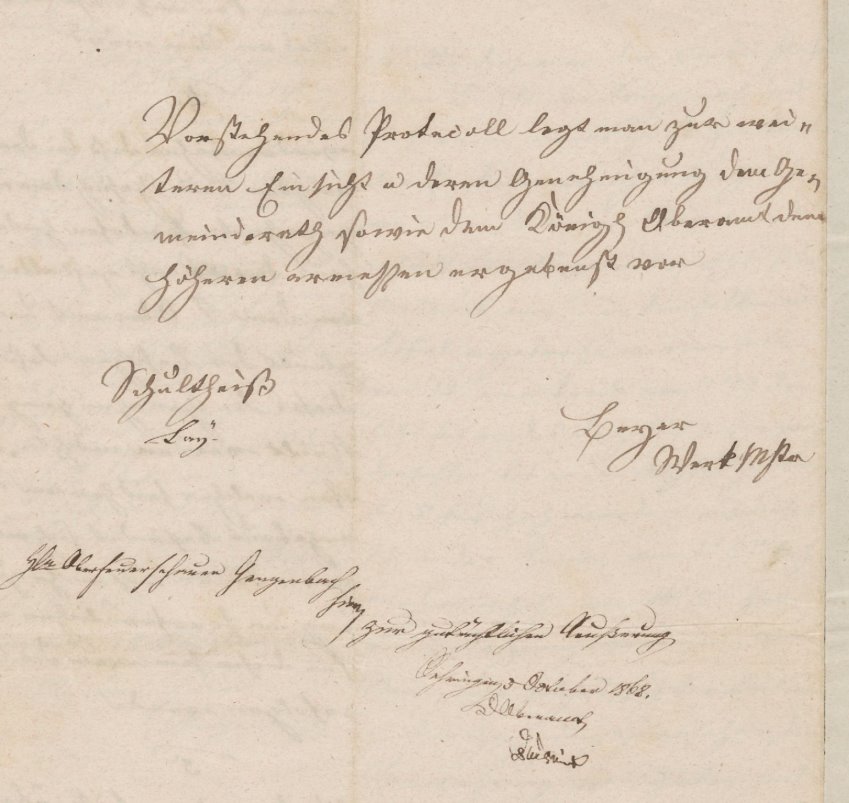 Vorstehendes Protecoll legt man zur wei„
teren Einsicht u deren Genehmigung dem Ge„
meinderath sowie dem Königl Oberamt dem
höheren ermessen ergebenst vor
Schultheiß
Lay.
Beyer
Werk Mstr
Oberfeuerschauer Gengenbach
zur gutächtlichen Aeußerung
Oehringen 5 October 1868.
Oberamt